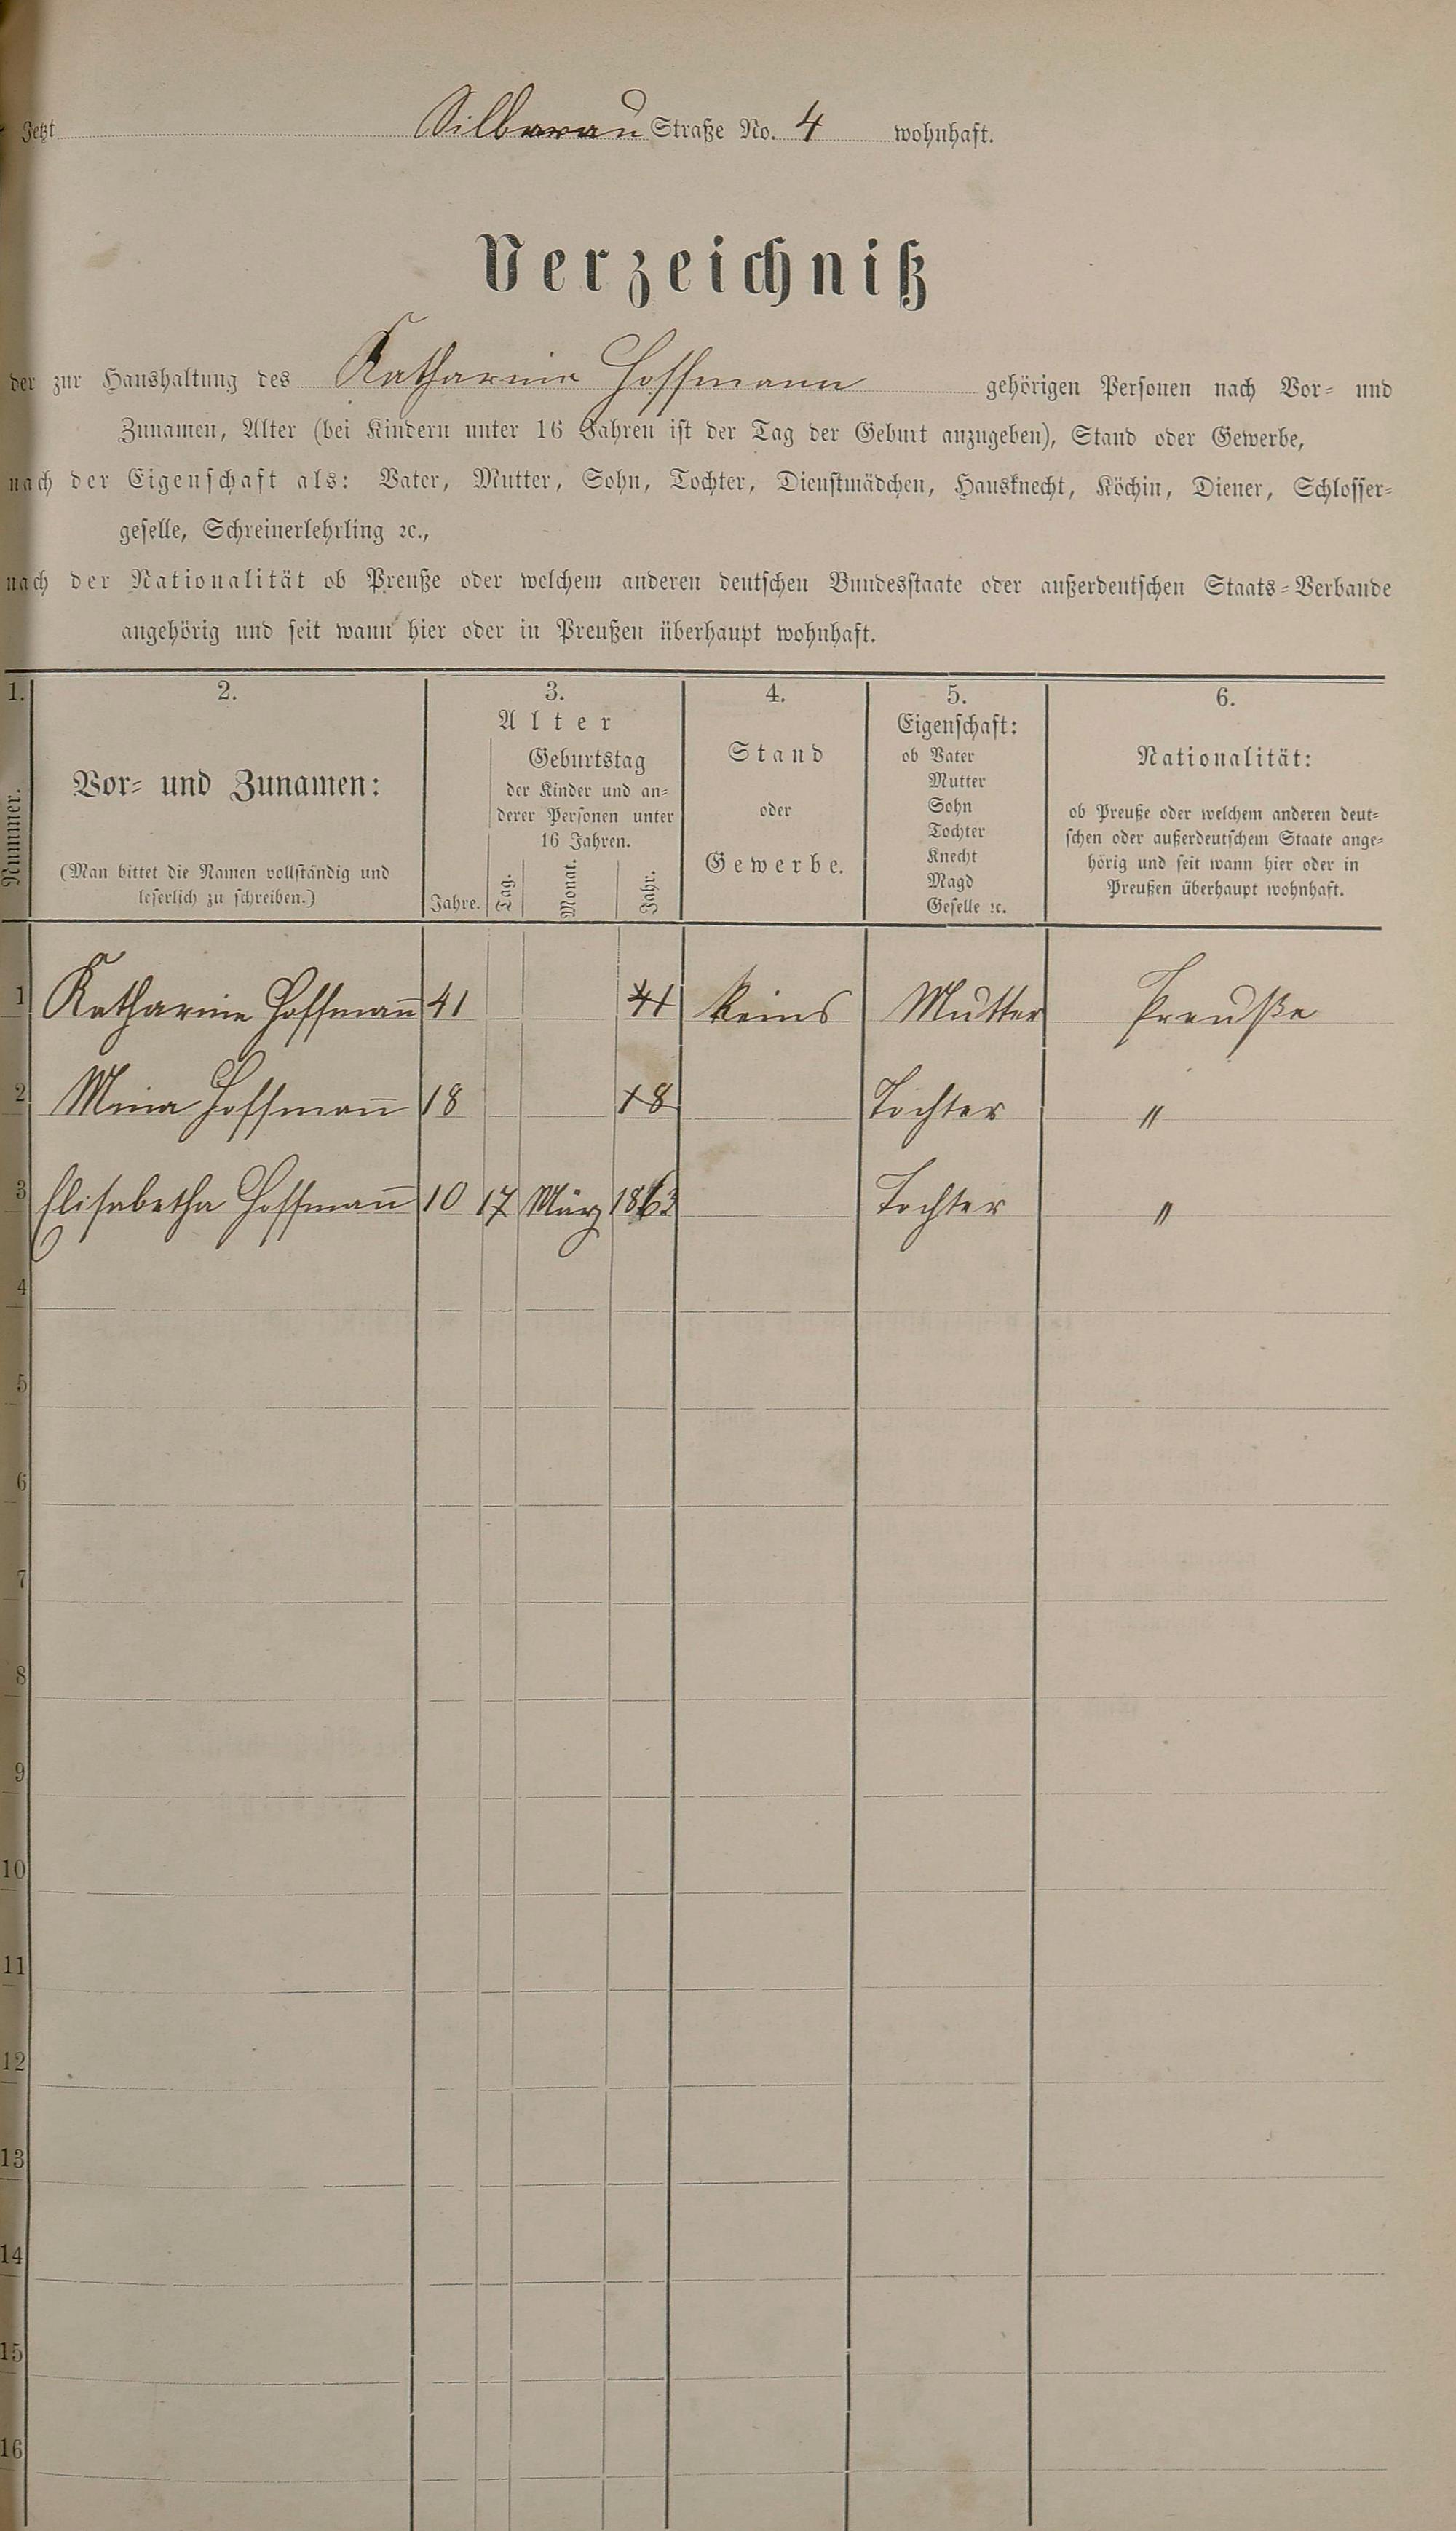 Jetzt Silberau Straße No. 4 wohnhaft.
Verzeichniß
der zur Haushaltung des Katharina Hoffmann gehörigen Personen nach Vor- und
Zunamen, Alter (bei Kindern unter 16 Jahren ist der Tag der Geburt anzugeben), Stand oder Gewerbe,
nach der Eigenschaft als: Vater, Mutter, Sohn, Tochter, Dienstmädchen, Hausknecht, Köchin, Diener, Schlosser-
geselle, Schreinerlehrling ꝛc.,
nach der Nationalität ob Preuße oder welchem anderen deutschen Bundesstaate oder außerdeutschen Staats-Verbande
angehörig und seit wann hier oder in Preußen überhaupt wohnhaft.
1. 2. 3. 4. 5. 6.
Nummer.
Vor- und Zunamen:
(Man bittet die Namen vollständig und
leserlich zu schreiben.)
Alter
Jahre.
Geburtstag
der Kinder und an-
derer Personen unter
16 Jahren.
Tag. Monat. Jahr.
Stand
oder
Gewerbe.
Eigenschaft:
ob Vater
Mutter
Sohn
Tochter
Knecht
Magd
Geselle ꝛc.
Nationalität:
ob Preuße oder welchem anderen deut-
schen oder außerdeutschem Staate ange-
hörig und seit wann hier oder in
Preußen überhaupt wohnhaft.
1 Katharina Hoffmann̄ 41 41 keins Mutter Preuße
2 Mina Hoffman̄ 18 18 Tochter "
3 Elisabetha Hoffman̄ 10 17 März 1863 Tochter "
4
5
6
7
8
9
10
11
12
13
14
15
16